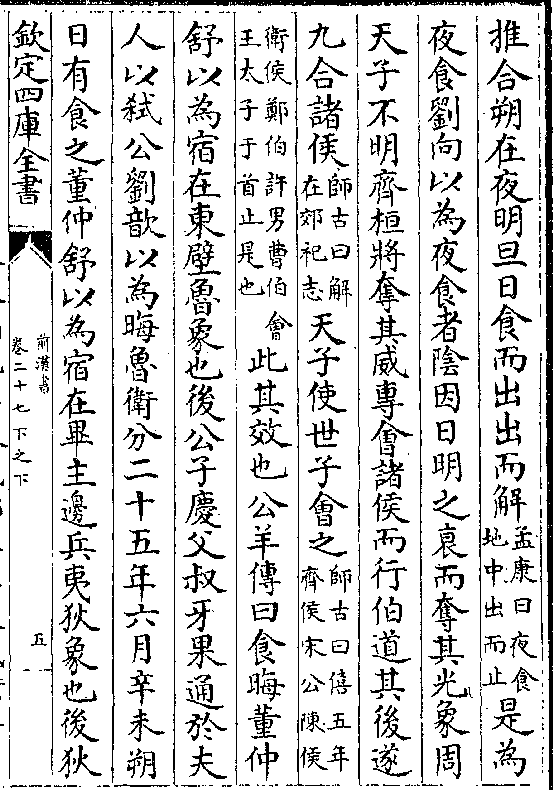 推合朔在夜明旦日食而出出而解孟康曰夜食地中出而止是為
夜食劉向以為夜食者陰因日明之衰而奪其光象周
天子不明齊桓將奪其威專會諸侯而行伯道其後遂
九合諸侯師古曰解在郊祀志天子使世子會之師古曰僖五年齊侯宋公陳侯
衛侯鄭伯許男曹伯會王太子于首止是也此其效也公羊傳曰食晦董仲
舒以為宿在東壁魯象也後公子慶父叔牙果通於夫
人以弒公劉歆以為晦魯衛分二十五年六月辛未朔
日有食之董仲舒以為宿在畢主邊兵夷狄象也後狄
欽定四庫全書
前漢書
卷二十七下之下
五